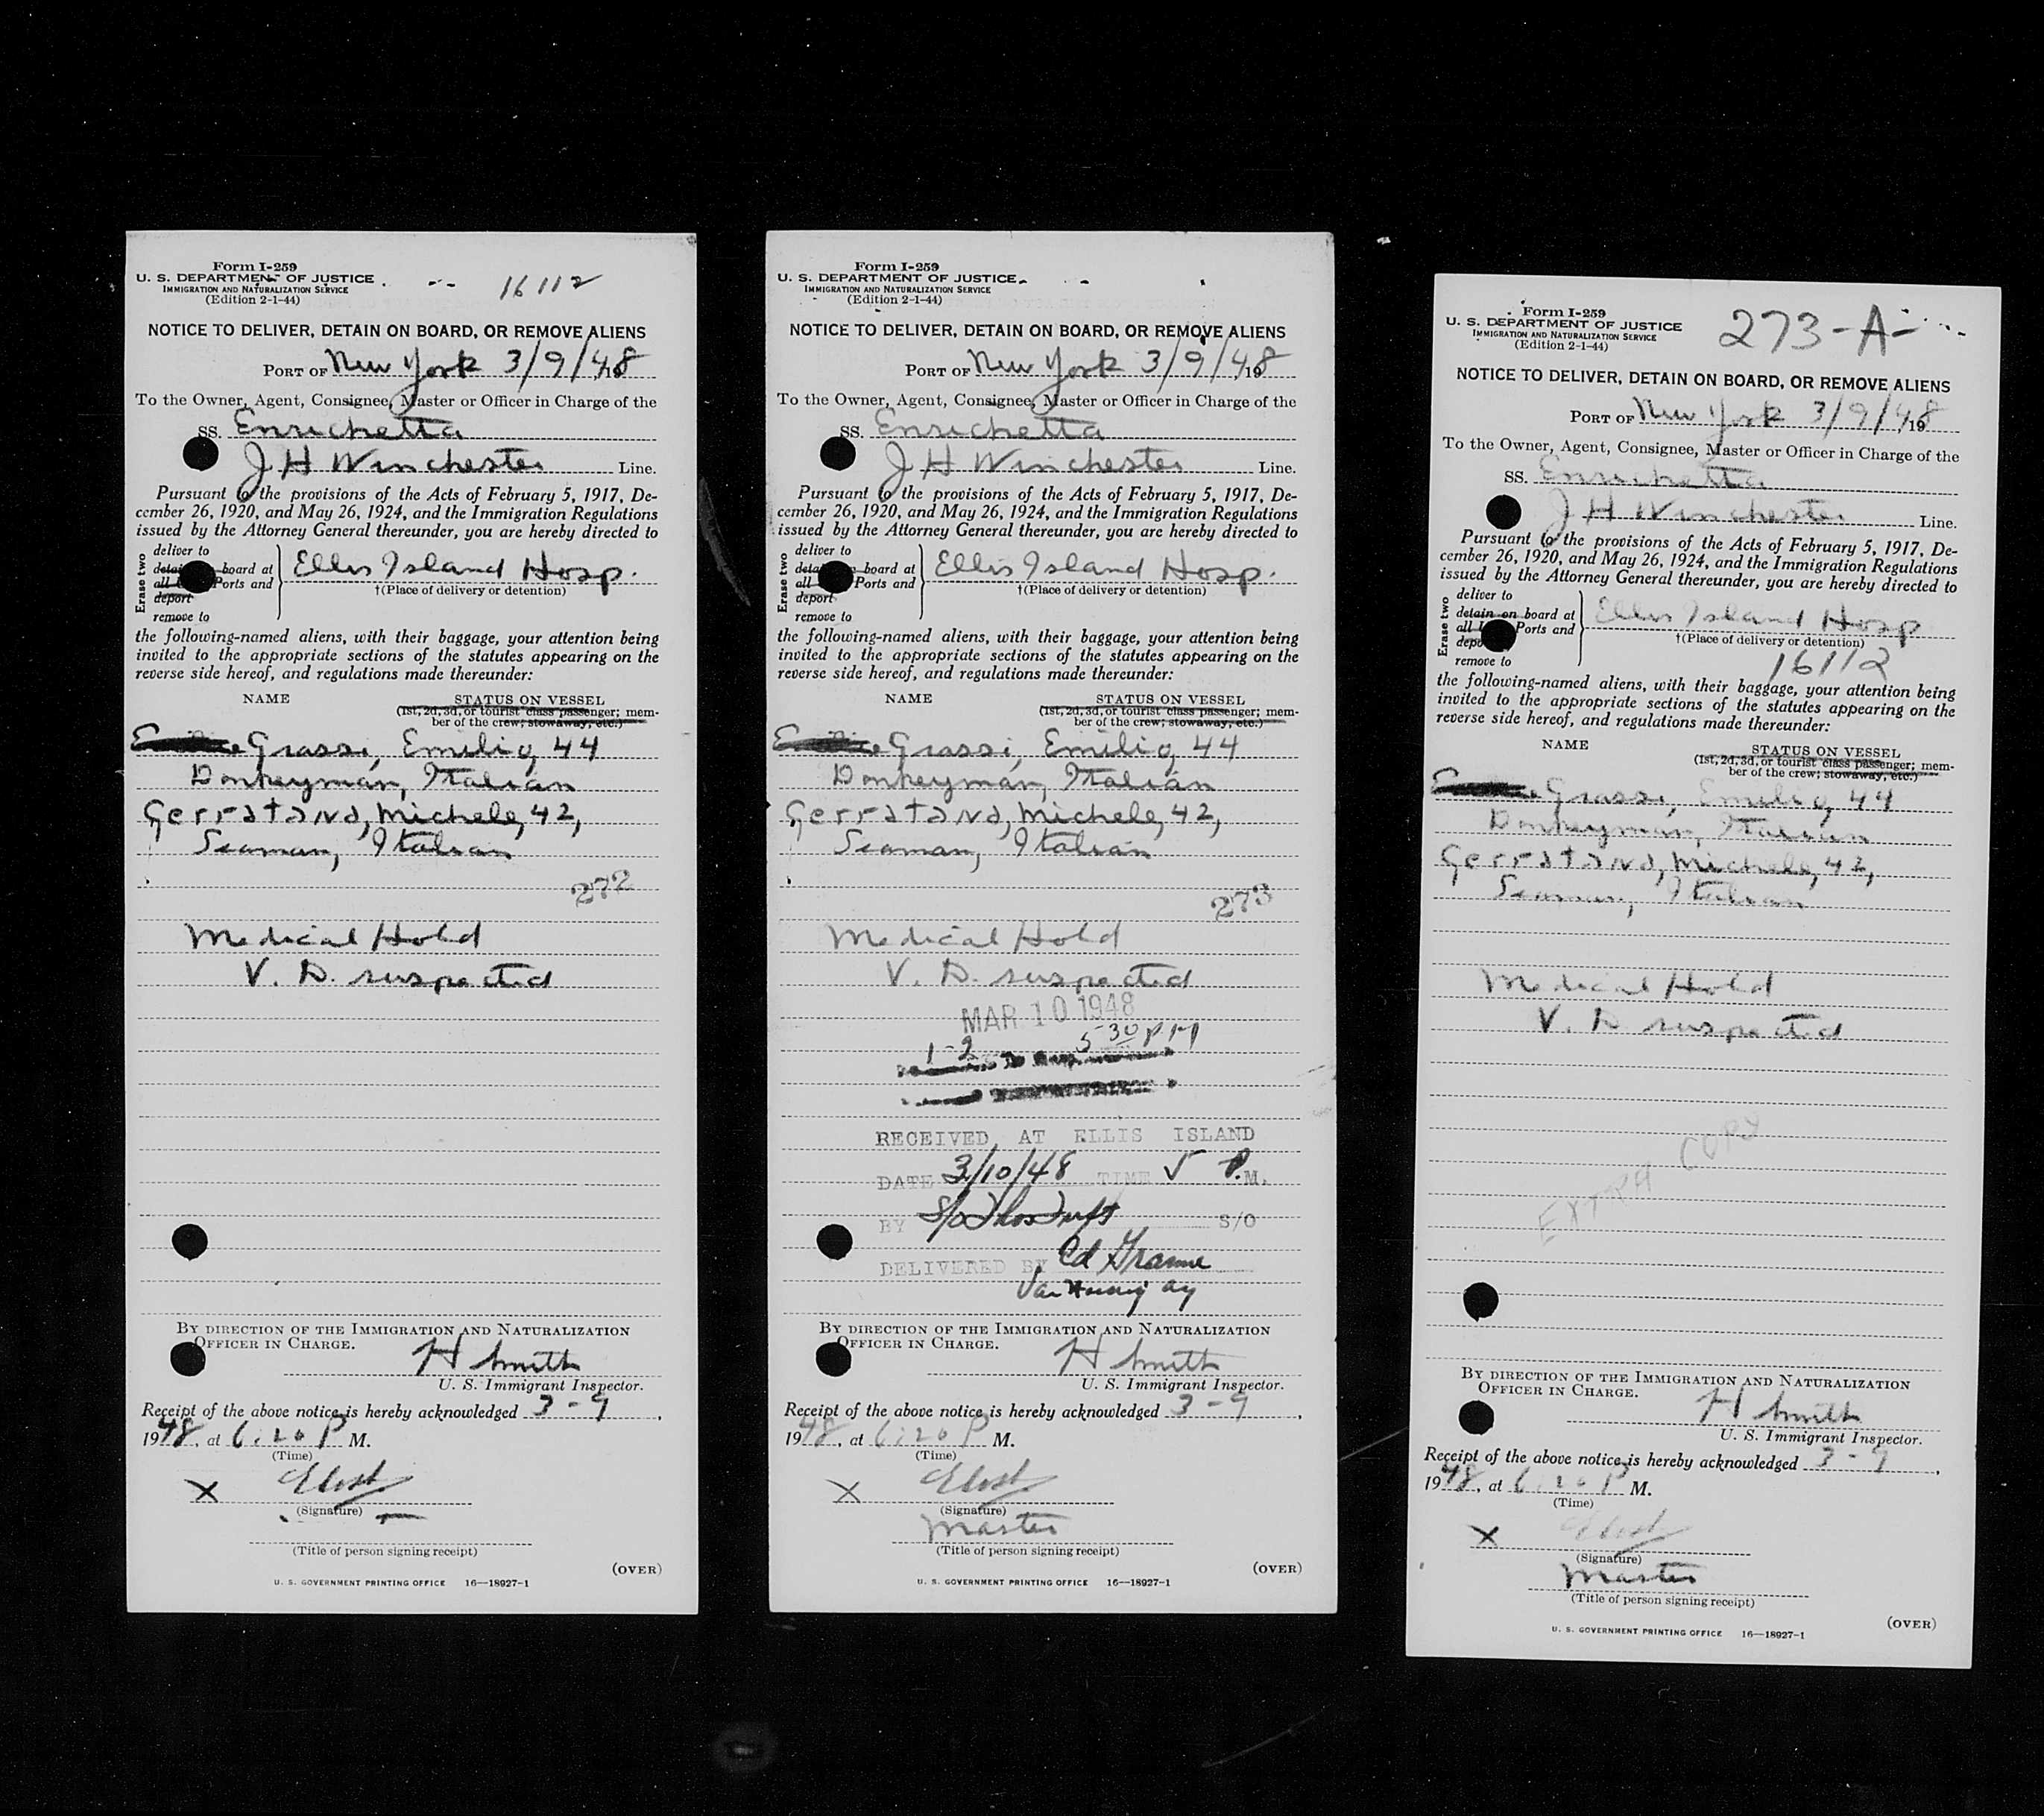 Form I-259
U. S. DEPARTMENT OF JUSTICE
IMMIGRATION AND NATURALIZATION SERVICE
(Edition 2-1-44)
16112
NOTICE TO DELIVER, DETAIN ON BOARD, OR REMOVE ALIENS
PORT OF New York 3/9/48, 19
To the Owner, Agent, Consignee, Master or Officer in Charge of the
SS. Enrichetta
J H Winchester Line.
Pursuant to the provisions of the Acts of February 5, 1917, De-
cember 26, 1920, and May 26, 1924, and the Immigration Regulations
issued by the Attorney General thereunder, you are hereby directed to
Erase two
deliver to
board at
all Ports and
deport
remove to
Ellis Island Hosp.
†(Place of delivery or detention)
the following-named aliens, with their baggage, your attention being
invited to the appropriate sections of the statutes appearing on the
reverse side hereof, and regulations made thereunder:
NAME STATUS ON VESSEL
(1st, 2d, 3d, or tourist class passenger; mem-
ber of the crew; stowaway, etc.)
Grassi, Emilio, 44
Donkeyman, Italian
Gerratana, Michele, 42,
Seaman, Italian
272
Medical Hold
V. D. suspected
BY DIRECTION OF THE IMMIGRATION AND NATURALIZATION
OFFICER IN CHARGE.
H Smith
U. S. Immigrant Inspector.
Receipt of the above notice is hereby acknowledged 3-9,
1948, at 6:20 P M.
(Time)
X
(Signature)
(Title of person signing receipt)
(OVER)
U. S. GOVERNMENT PRINTING OFFICE 16—18927-1
Form I-259
U. S. DEPARTMENT OF JUSTICE
IMMIGRATION AND NATURALIZATION SERVICE
(Edition 2-1-44)
NOTICE TO DELIVER, DETAIN ON BOARD, OR REMOVE ALIENS
PORT OF New York 3/9/48, 19
To the Owner, Agent, Consignee, Master or Officer in Charge of the
SS. Enrichetta
J H Winchester Line.
Pursuant to the provisions of the Acts of February 5, 1917, De-
cember 26, 1920, and May 26, 1924, and the Immigration Regulations
issued by the Attorney General thereunder, you are hereby directed to
Erase two
deliver to
board at
all Ports and
deport
remove to
Ellis Island Hosp.
†(Place of delivery or detention)
the following-named aliens, with their baggage, your attention being
invited to the appropriate sections of the statutes appearing on the
reverse side hereof, and regulations made thereunder:
NAME STATUS ON VESSEL
(1st, 2d, 3d, or tourist class passenger; mem-
ber of the crew; stowaway, etc.)
Grassi, Emilio, 44
Donkeyman, Italian
Gerratana, Michele, 42,
Seaman, Italian
273
Medical Hold
V. D. suspected
MAR 10 1948
1-2 5 30 PM
RECEIVED AT ELLIS ISLAND
DATE 3/10/48 TIME 5 P.M.
BY S/O
DELIVERED BY Ed
BY DIRECTION OF THE IMMIGRATION AND NATURALIZATION
OFFICER IN CHARGE.
H Smith
U. S. Immigrant Inspector.
Receipt of the above notice is hereby acknowledged 3-9,
1948, at 6:20 P M.
(Time)
X
(Signature)
Master
(Title of person signing receipt)
(OVER)
U. S. GOVERNMENT PRINTING OFFICE 16—18927-1
Form I-259
U. S. DEPARTMENT OF JUSTICE
IMMIGRATION AND NATURALIZATION SERVICE
(Edition 2-1-44)
273-A-
NOTICE TO DELIVER, DETAIN ON BOARD, OR REMOVE ALIENS
PORT OF New York 3/9/48, 19
To the Owner, Agent, Consignee, Master or Officer in Charge of the
SS. Enrichetta
J H Winchester Line.
Pursuant to the provisions of the Acts of February 5, 1917, De-
cember 26, 1920, and May 26, 1924, and the Immigration Regulations
issued by the Attorney General thereunder, you are hereby directed to
Erase two
deliver to
detain on board at
all Ports and
remove to
Ellis Island Hosp
†(Place of delivery or detention)
16112
the following-named aliens, with their baggage, your attention being
invited to the appropriate sections of the statutes appearing on the
reverse side hereof, and regulations made thereunder:
NAME STATUS ON VESSEL
(1st, 2d, 3d, or tourist class passenger; mem-
ber of the crew; stowaway, etc.)
Grassi, Emilio, 44
Donkeyman, Italian
Gerratana, Michele, 42,
Seaman, Italian
Medical Hold
V. D suspected
EXTRA COPY
BY DIRECTION OF THE IMMIGRATION AND NATURALIZATION
OFFICER IN CHARGE.
H Smith
U. S. Immigrant Inspector.
Receipt of the above notice is hereby acknowledged 3-9,
1948, at 6:20 P M.
(Time)
X
(Signature)
Master
(Title of person signing receipt)
(OVER)
U. S. GOVERNMENT PRINTING OFFICE 16—18927-1